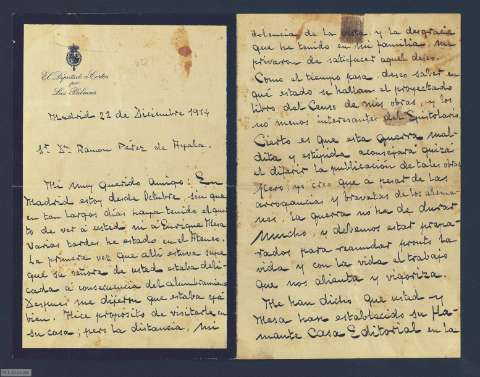 El Diputado a Cortes
por
Las Palmas
Madrid 22 de Diciembre 1914
Sr. Dn. Ramon Perez de Ayala
Mi muy querido Amigo: En
Madrid estoy desde Octubre, sin que
en tan largos días haya tenido el gus-
to de ver a usted ni a Enrique Mesa
Varias tardes he estado en el Ateneo.
La primera vez que allí estuve supe
que la señora de usted estaba deli-
cada a consecuencia del alumbramiento
Despues me dijeron que estaba ya
bien. Hice propósito de visitarle en
su casa; pero la distancia, mi
dolencia de la vista y la desgracia
que he tenido en mi familia me
privaron de satisfacer aquel deseo.
Como el tiempo pasa, deseo saber en
qué estado se hallan el proyectado
libro del Censo de mis obras, y los
no menos interesantes del Epistolario.
Cierto es que esta guerra mal-
dita y estúpida aconsejará quizá
el diferir la publicación de tales obras
pero yo creo que a pesar de las
arrogancias y bravatas de los alema-
nes, la guerra no ha de durar
mucho, y debemos estar prepa-
rados para reanudar pronto la
vida y con la vida el trabajo
que nos alienta y vigoriza.
Me han dicho que usted y
Mesa han establecido su fla-
mante Casa Editorial en la